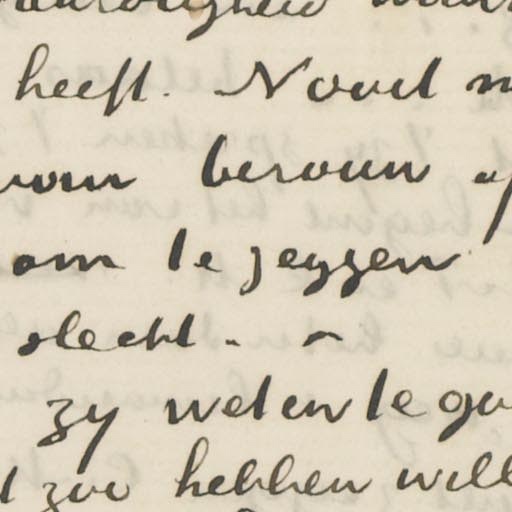 heeft. Nooit
berouw of
om te zeggen
slecht. -
zy weten te go
zoo hebben will